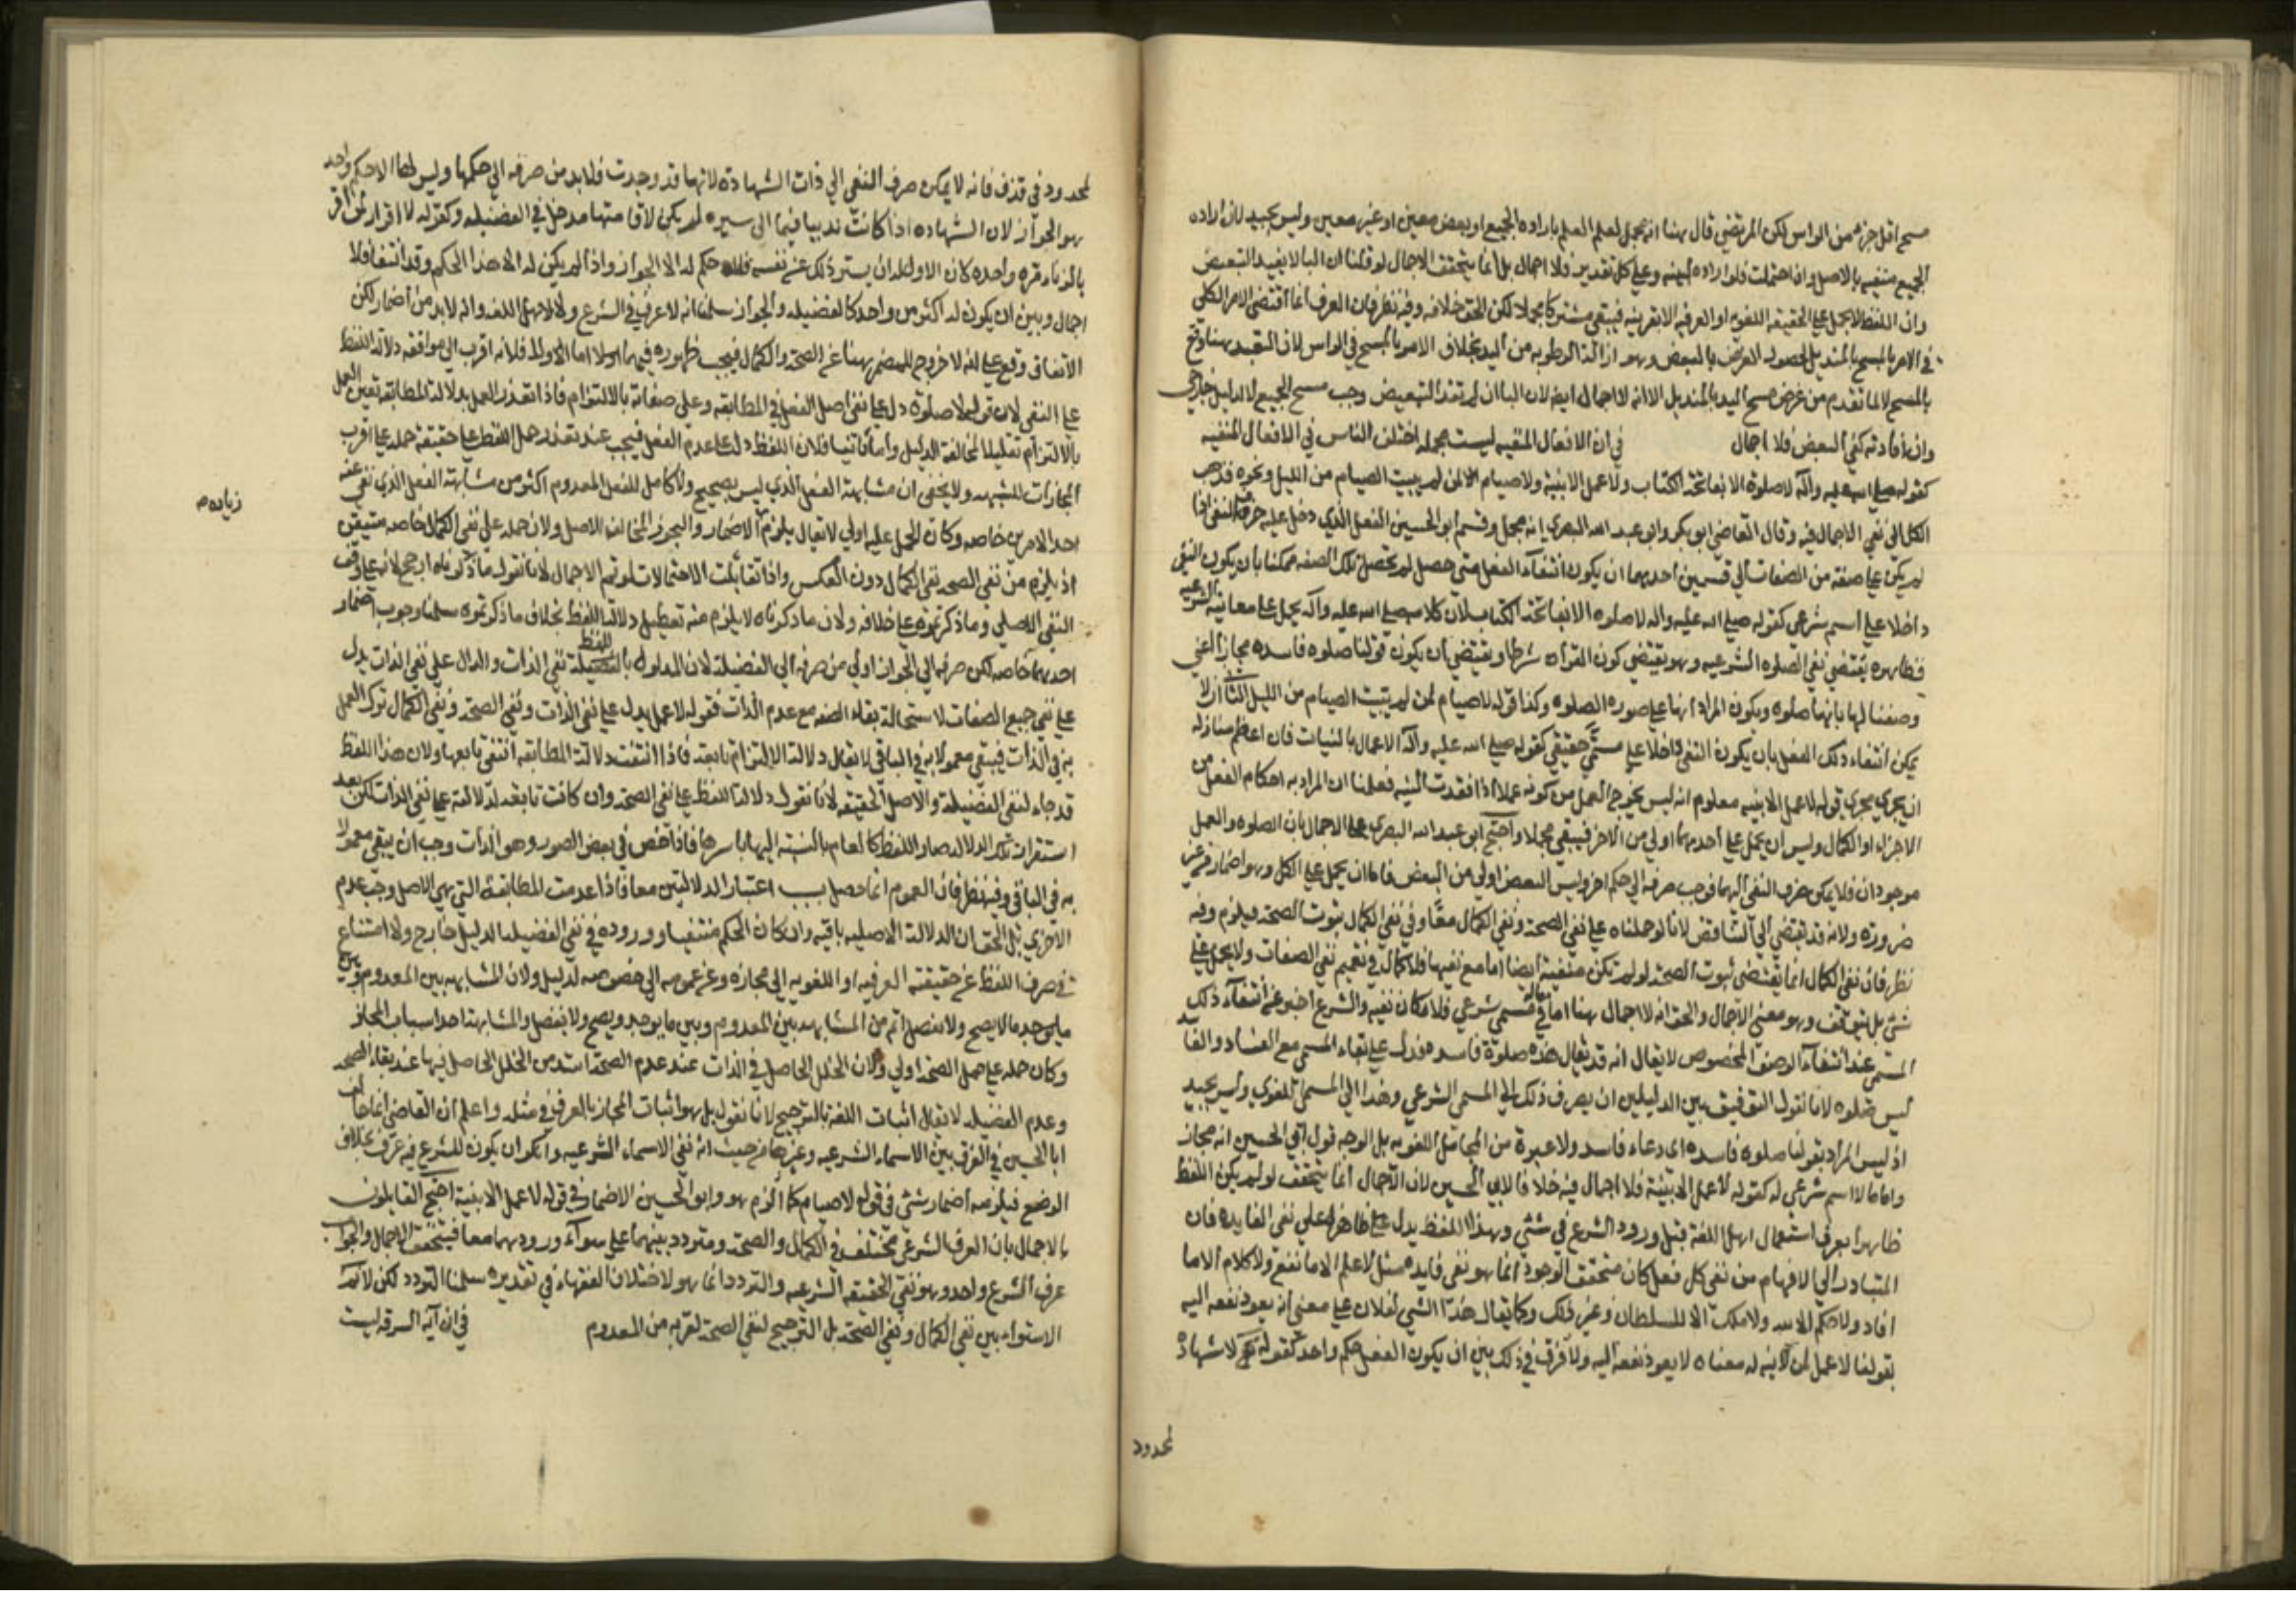 مسح اقل جزء من الراس لكن المرتضى قال هنا انه مجمل لعدم العلم بارادة الجميع او بعض معين او غير معين وليس بجيد لان ارادة
الجميع منتفيه بالاصل وان احتملت فلو اراده لبينه وعلى كل تقدير فلا اجمال بل انما يتحقق الاجمال لو قلنا ان البا لا يفيد التبعيض
وان اللفظ لا يحمل على الحقيقه اللغويه او العرفيه الا بقرينه فيبقى مشتركا مجملا لكن الحق خلافه وفيه نظر فان العرف انما اقتضى الامر الكلي
في الامر بالمسح بالمنديل لحصول الغرض بالبعض وهو ازالة الرطوبه من اليد بخلاف الامر بالمسح في الراس لان التعبد هنا وقع
بالمسح لا لما تقدم من غرض مسح اليد بالمنديل الا انه لا اجمال ايضا لان البا ان لم تفد التبعيض وجب مسح الجميع الا لدليل خارجي
وان افادته كفى البعض فلا اجمال في ان الافعال المنفيه ليست مجمله اختلف الناس في الافعال المنفيه
كقوله صلى الله عليه وآله لا صلوة الا بفاتحة الكتاب ولا عمل الا بنية ولا صيام لمن لم يبيت الصيام من الليل ونحوه فذهب
الكل الى نفي الاجمال فيه وقال القاضي ابو بكر وابو عبد الله البصري انه مجمل وقسم ابو الحسين الفعل الذي دخل عليه حرف النفي اذا
لم يكن على صفة من الصفات الى قسمين احدهما ان يكون انتفاء الفعل متى حصل لم تحصل تلك الصفه ممكنا بان يكون النفي
داخلا على اسم شرعي كقوله صلى الله عليه واله لا صلوه الا بفاتحة الكتاب لان كلامه صلى الله عليه وآله يحمل على معانيه الشرعيه
فظاهره يقتضي نفي الصلوه الشرعيه وهو يقتضي كون القراءة شرطا ويقتضي ان يكون قولنا صلوه فاسده مجازا اعني
وصفنا لها بانها صلوه ويكون المراد انها على صورة الصلوه وكذا قوله لا صيام لمن لم يبيت الصيام من الليل الثاني ان لا
يمكن انتفاء ذلك الفعل بان يكون النفي داخلا على مسمّى حقيقي كقوله صلى الله عليه وآله الاعمال بالنيات فان اعظم منازله
ان يجري مجرى قوله لا عمل الا بنيه معلوم انه ليس يخرج العمل من كونه عملا اذا فقدت النيه فعلمنا ان المراد به احكام الفعل من
الاجزاء او الكمال وليس ان يحمل على احدهما اولى من الاخر فيبقى مجملا واحتج ابو عبد الله البصري على الاجمال بان الصلوه والعمل
موجودان فلا يمكن صرف النفي اليهما فوجب صرفه الى حكم اخر وليس البعض اولى من البعض فاما ان يحمل على الكل وهو اضمار من غير
ضروره ولانه قد يقتضي الى التناقض لانا لو حملناه على نفي الصحة ونفي الكمال معًا وفي نفي الكمال ثبوت الصحة فيلزم وفيه
نظر فان نفي الكمال انما يقتضي ثبوت الصحة لو لم تكن منفية ايضا اما مع نفيها فلا كمال في تعميم نفي الصفات ولا يحمل على
شئ بل يتوقف وهو معنى الاجمال والحق انه لا اجمال هنا اما في مسمى شرعي فلامكان نفيه والشرع اخبر عن انتفاء ذلك
المسمى عند انتفاء الوصف المخصوص لا يقال انه قد يقال هذه صلوة فاسده فدل على بقاء المسمى مع الفساد والفا
ليس صلوه لانا نقول التوفيق بين الدليلين ان يصرف ذلك الى المسمى الشرعي وهذا الى المسمى اللغوي وليس بجيد
اذ ليس المراد بقولنا صلوه فاسده اى دعاء فاسد ولا عبرة من المحامل اللغويه بل الوجه قول ابي الحسين انه مجاز
واما ما لا اسم شرعي له كقوله لا عمل الا بنية فلا اجمال فيه خلافا لابي الحسين لان الاجمال انما يتحقق لو لم يكن اللفظ
ظاهرا بعرف استعمال اهل اللغة قبل ورود الشرع في شئ وهذا اللفظ يدل على ظاهرا على نفي الفايده فان
المتبادر الى الافهام من نفي كل فعل كان متحقق الوجود انما هو نفي فايده مثل لا علم الا ما نفع ولا كلام الا ما
افاد ولا حكم الا لله ولا ملك الا للسلطان وغير ذلك وكما يقال هذا الشئ لفلان على معنى ان يعود نفعه اليه
بقولنا لا عمل لمن لا نيه له معناه لا يعود نفعه اليه ولا فرق في ذلك بين ان يكون الفعل حكم واحد كقوله لا شهادة
لمحدود
لمحدود في قذف فانه لا يمكن صرف النفي الى ذات الشهادة لانها قد وجدت فلا بد من صرفه الى حكمها وليس لها الا حكم واحد
هو الجواز لان الشهاده اذا كانت ندبيا فيما الى سيره لم يكن لاقامتها مدخل في الفضيله وكقوله لا اقرار لمن اقر
بالزناء مره واحده لان الاولى له ان يستر ذلك على نفسه فلا حكم له الا الجواز واذا لم يكن له الا هذا الحكم وقد انتفى فلا
اجمال وبين ان يكون له اكثر من واحد كالفضيله والجواز سلمنا انه لا عرف في الشرع ولا لاهل اللغه وانه لا بد من اضمار لكن
الاتفاق وقع على انه لا خروج للمضمر هنا عن الصحة والكمال فيجب ظهوره فيهما اولا اما الاول فلانه اقرب الى موافقه دلالة اللفظ
على النفي لان قوله لا صلوة دل على نفي اصل الفعل في المطابقه وعلى صفاته بالالتزام فاذا تعذر العمل بدلالة المطابقه تعين العمل
بالالتزام تقليلا لمخالفة الدليل واما ثانيا فلان اللفظ دل على عدم الفعل فيجب عند تعذر حمل اللفظ على حقيقته حمله على اقرب
المجازات الشبيهه ولا يخفى ان مشابهة الفعل الذي ليس بصحيح ولا كامل للفعل المعدوم اكثر من مشابهة الفعل الذي نفى عنه
احد الامرين خاصه وكان الحمل عليه اولى لا يقال يلزم زياده الاضمار والتجوز المخالف الاصل ولان حمله على نفي الكمال خاصه متيقن
زياده م
اذ يلزم من نفي الصحه نفي الكمال دون العكس واذا تقابلت الاحتمالات لزم الاجمال لانا نقول ما ذكرناه ارجح لانه على وفق
النفي الاصلي وما ذكرتموه على خلافه ولان ما ذكرناه لا يلزم منه تعطيل دلالة اللفظ بخلاف ما ذكرتموه سلمنا وجوب اضمار
احدهما خاصه لكن صرفه الى الجواز اولى من صرفه الى الفضيلة لان المدلول باللفظ نفي الذات والدال على نفي الذات يدل
على نفي جميع الصفات لاستحالة بقاء الصفه مع عدم الذات فقوله لا عمل يدل على نفي الذات ونفي الصحة ونفي الكمال ترك العمل
به في الذات فيبقى معمولا به في الباقي لا يقال دلالة الالتزام تابعة فاذا انتفت دلالة المطابقه انتفى تابعها ولان هذا اللفظ
قد جاء لنفي الفضيلة والاصل الحقيقه لانا نقول دلالة اللفظ على نفي الصحة وان كانت تابعة لدلالته على نفي الذات لكن بعد
استقرار تلك الدلاله صار اللفظ كالعام بالنسبة اليها باسرها فاذا خص في بعض الصور وهو الذات وجب ان يبقى معمولا
به في الباقي وفيه نظر فان العموم انما حصل بسبب اعتبار الدلالتين معا فاذا عدمت المطابقة التي هي الاصل وجب عدم
الاخرى بل الحق ان الدلالة الاصليه باقيه وان كان الحكم منتفيا ووروده في نفي الفضيله لدليل خارج ولا امتناع
في صرف اللفظ عن حقيقته العرفيه او اللغويه الى مجازه وعن عمومه الى خصوصه لدليل ولان المشابهه بين المعدوم وبين
ما يوجد ما لا يصح ولا يفضل اتم من المشابهه بين المعدوم وبين ما يوجد ويصح ولا يفضل والمشابهة احد اسباب المجاز
وكان حمله على حمل الصحة اولى ولان الخلل الحاصل في الذات عند عدم الصحة اشد من الخلل الحاصل فيها عند بقاء الصحه
وعدم الفضيله لا يقال اثبات اللغة بالترجيح لانا نقول بل هو اثبات المجاز بالعرف في مثله واعلم ان القاضي انما خالف
ابا الحسين في الفرق بين الاسماء الشرعيه وغيرها من حيث انه نفى الاسماء الشرعيه وانكر ان يكون للشرع فيه عرف بخلاف
الوضع فيلزمه اضمار شئ في قوله لا صيام كما الزم هو وابو الحسين الاضمار في قوله لا عمل الا بنية احتج القايلون
بالاجمال بان العرف الشرعي مختلف في الكمال والصحة ومتردد بينهما على سواء ورودهما معا فيتحقق الاجمال والجواب
عرف الشرع واحد وهو نفي الحقيقه الشرعيه والتردد انما هو لاختلاف الفقهاء في تقديره سلمنا التردد لكن لا نم
الاستواء بين نفي الكمال ونفي الصحة بل الترجيح لنفي الصحة لقربه من المعدوم في ان آية السرقه ليست